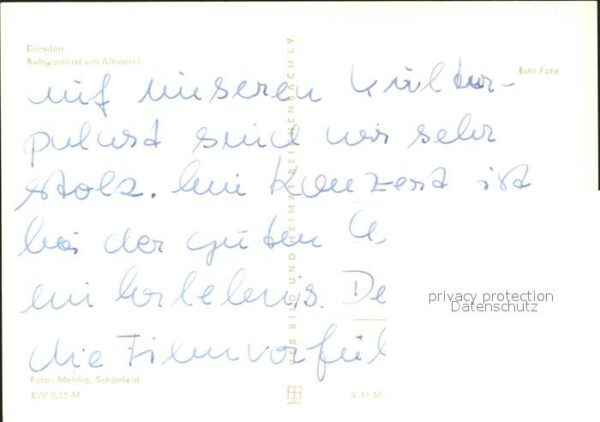 Dresden
Kulturpalast am Altmarkt
Echt Foto
auf unseren Kultur-
palast sind wir sehr
stolz. Ein Konzert ist
bei der guten
ein Erlebnis. De
die Filmvorfüh
VEB BILD UND HEIMAT REICHENBACH I. V.
privacy protection
Datenschutz
Foto: Mehlig, Schönfeld
EVP 0,25 M